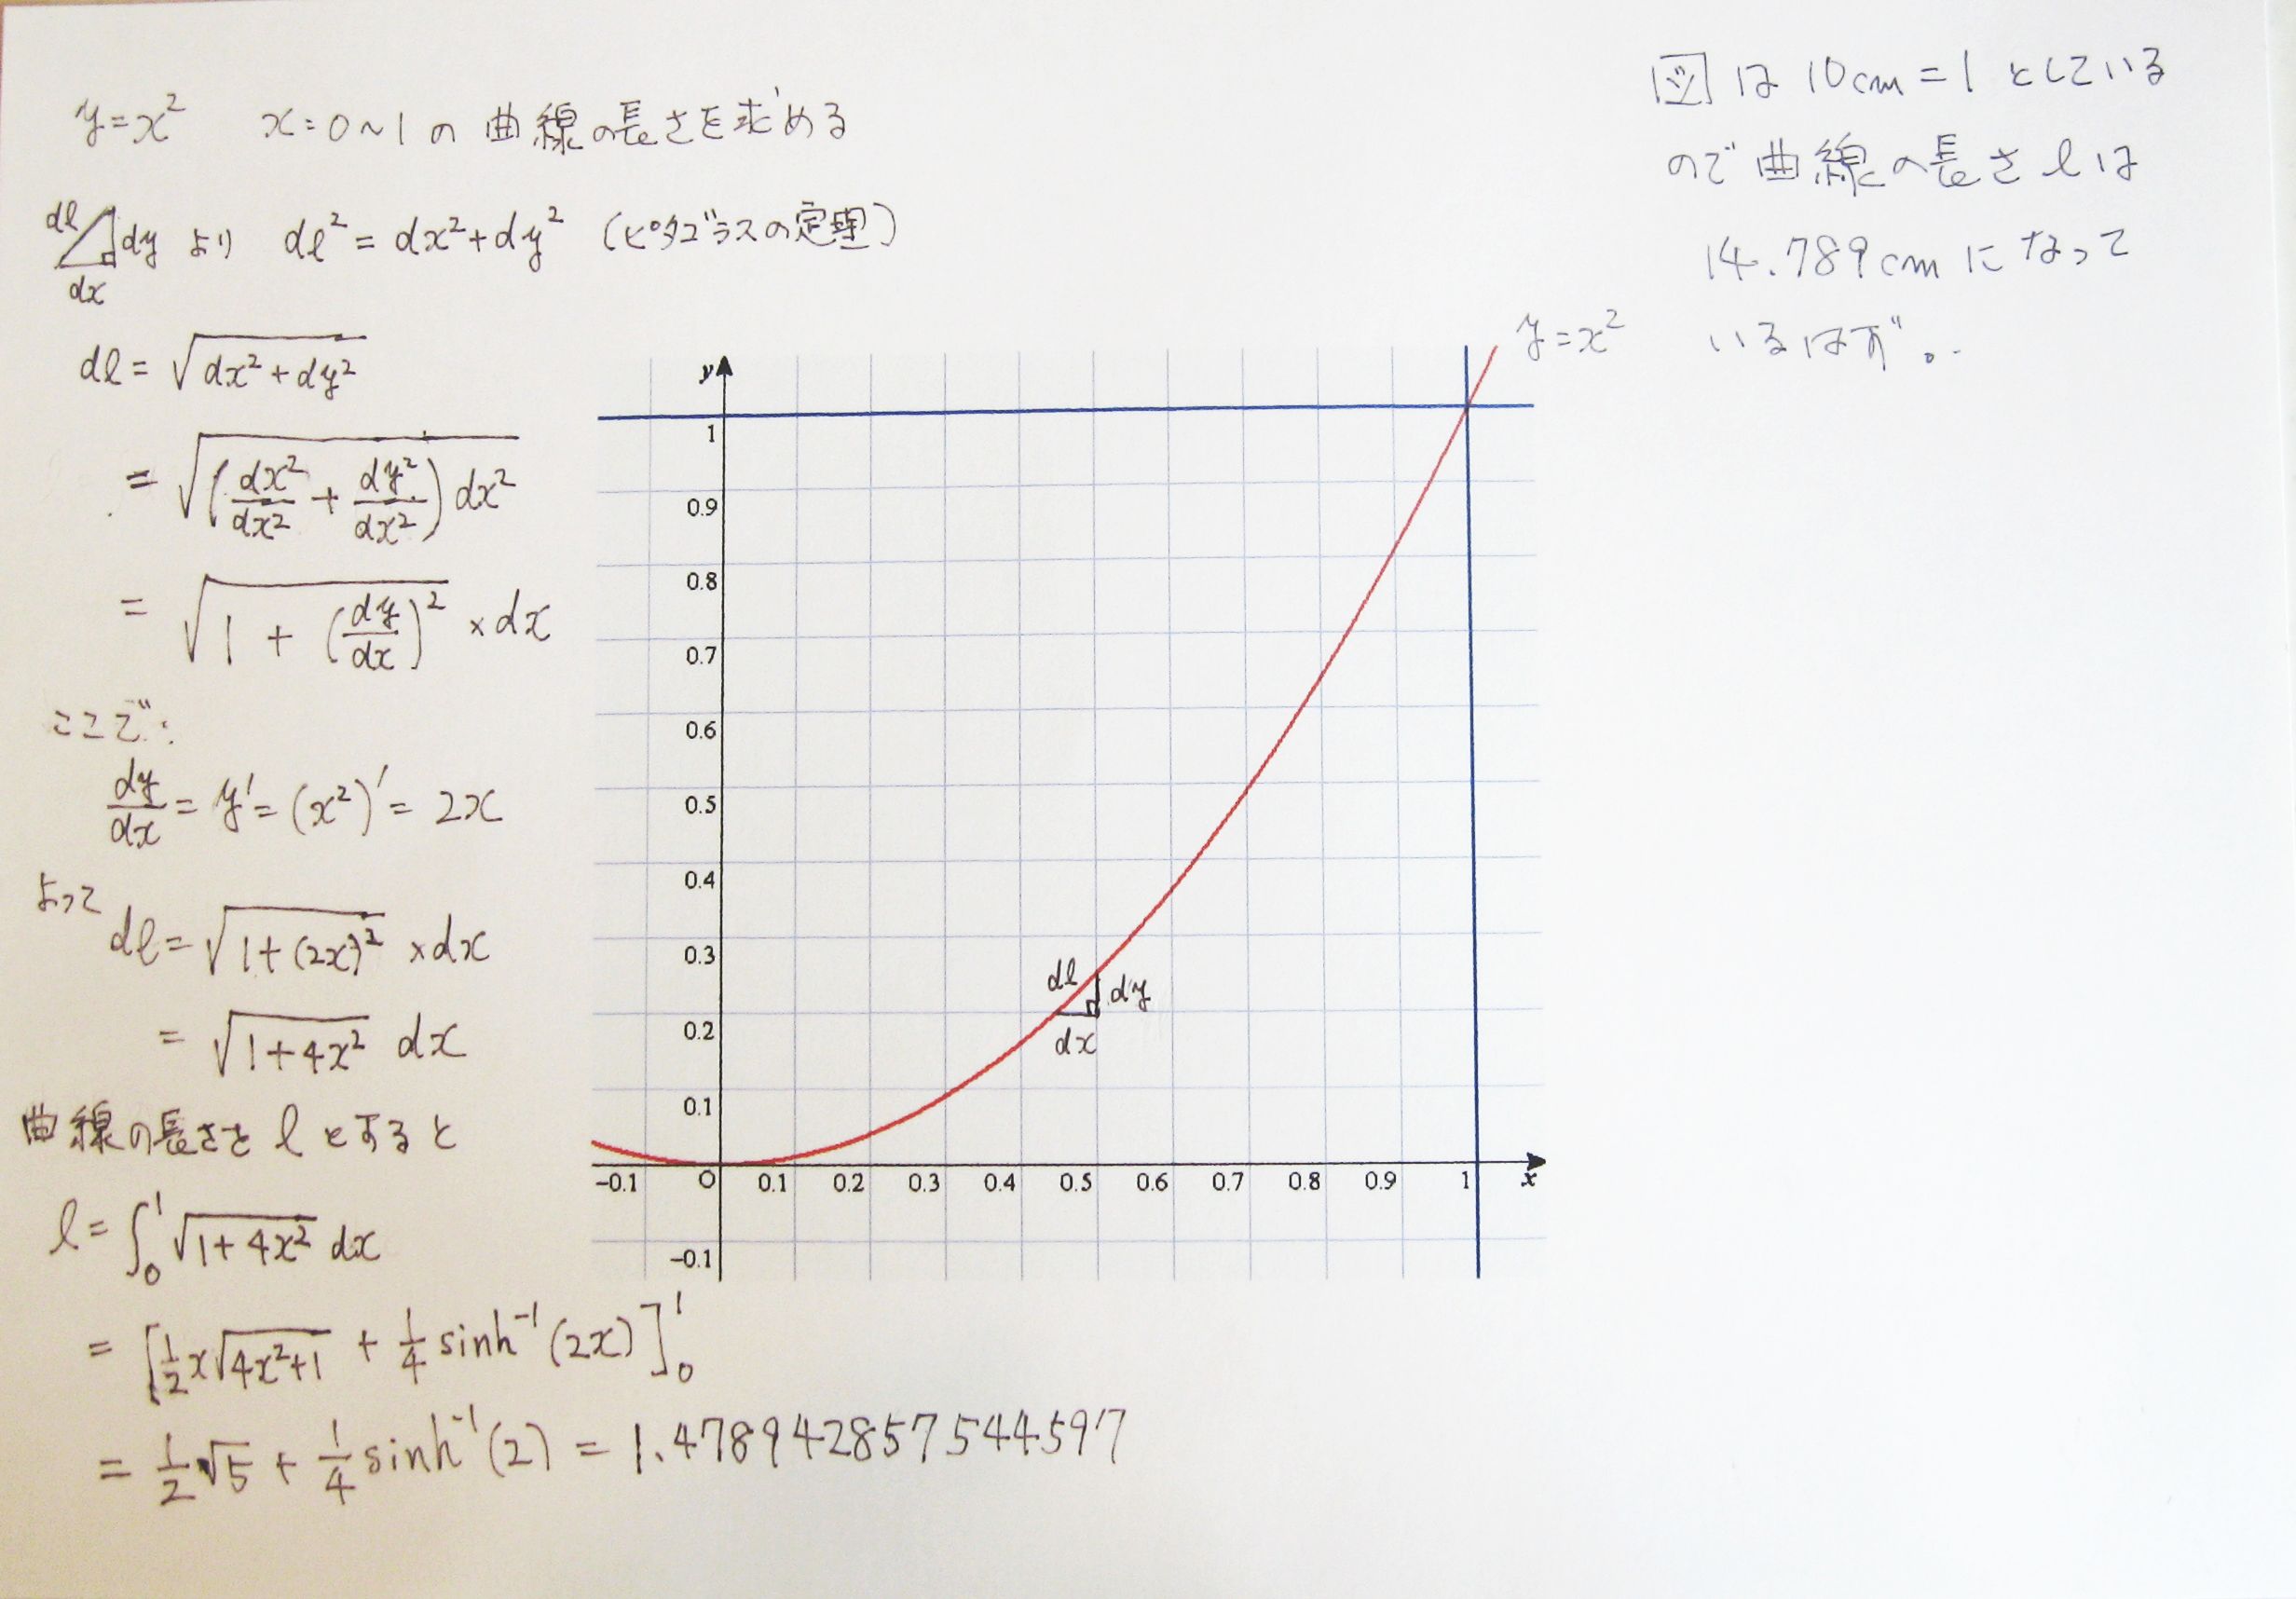 y=x² x=0~1の曲線の長さを求める
dl dy dx より dl²=dx²+dy² (ピタゴラスの定理)
dl=√(dx²+dy²)
=√((dx²/dx²+dy²/dx²)dx²)
=√(1+(dy/dx)²)×dx
ここで:
dy/dx=y'=(x²)'=2x
よって dl=√(1+(2x)²)×dx
=√(1+4x²) dx
曲線の長さを l とすると
l=∫₀¹√(1+4x²) dx
=[1/2x√(4x²+1)+1/4 sinh⁻¹(2x)]₀¹
=1/2√5+1/4 sinh⁻¹(2)=1.478942857544597
図は10cm=1としている
ので曲線の長さ l は
14.789cmになって
いるはず。
y=x²
y
1
0.9
0.8
0.7
0.6
0.5
0.4
0.3
0.2
0.1
dl dy
dx
-0.1 O 0.1 0.2 0.3 0.4 0.5 0.6 0.7 0.8 0.9 1 x
-0.1